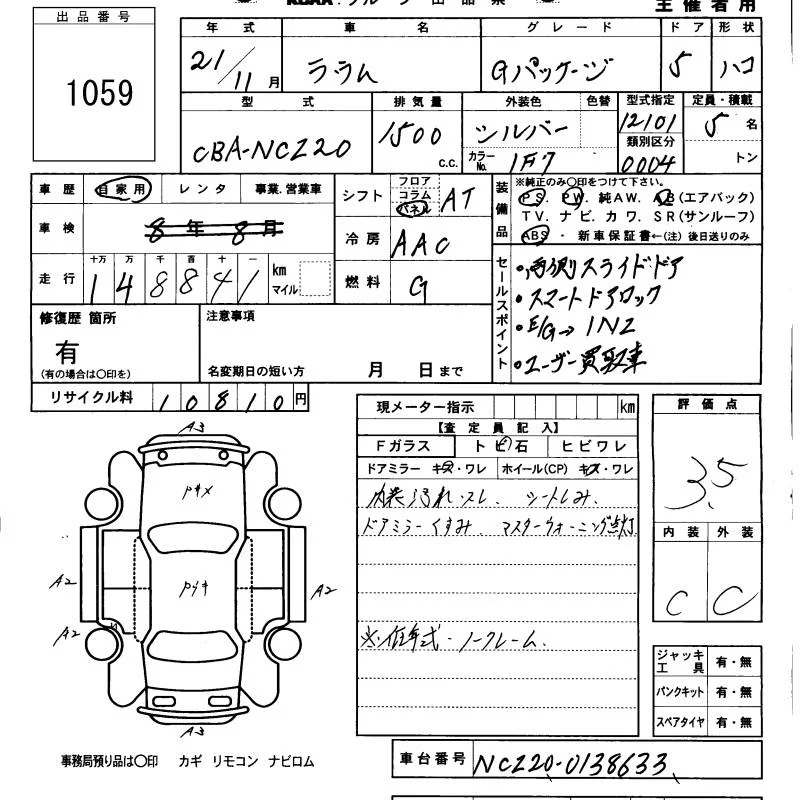 主催者用
出品番号
1059
年式 車名 グレード ドア 形状
21/11月 ララム Gパッケージ 5 ハコ
型式 排気量 外装色 色替 型式指定 定員・積載
CBA-NCZ20 1500 c.c. シルバー 12101 5名
カラーNo. 1F7 類別区分 0004 トン
車歴 自家用 レンタ 事業.営業車
車検 8年8月
走行 十万 万 千 百 十 一
148841 km マイル
シフト フロア コラム パネル AT
冷房 AAC
燃料 G
装備品 ※純正のみ〇印をつけて下さい。
PS. PW. 純AW. AB(エアバック)
TV. ナビ. カワ. SR(サンルーフ)
ABS ・ 新車保証書←(注) 後日送りのみ
セールスポイント
・両側スライドドア
・スマートドアロック
・E/G→1NZ
・ユーザー買取車
修復歴 箇所
有
(有の場合は〇印を)
注意事項
名変期日の短い方 月 日まで
リサイクル料 10810円
現メーター指示 km
【査定員記入】
Fガラス トビ石 ヒビワレ
ドアミラー キズ・ワレ ホイール(CP) キズ・ワレ
内装汚れ・スレ. シートしみ.
ドアミラーくすみ. マスターウォーニング点灯
※.低年式・ノークレーム.
評価点
3.5
内装 外装
C C
ジャッキ工具 有・無
パンクキット 有・無
スペアタイヤ 有・無
A3
A2
A2
A2
A3
事務局預り品は〇印 カギ リモコン ナビロム
車台番号 NCZ20-0138633